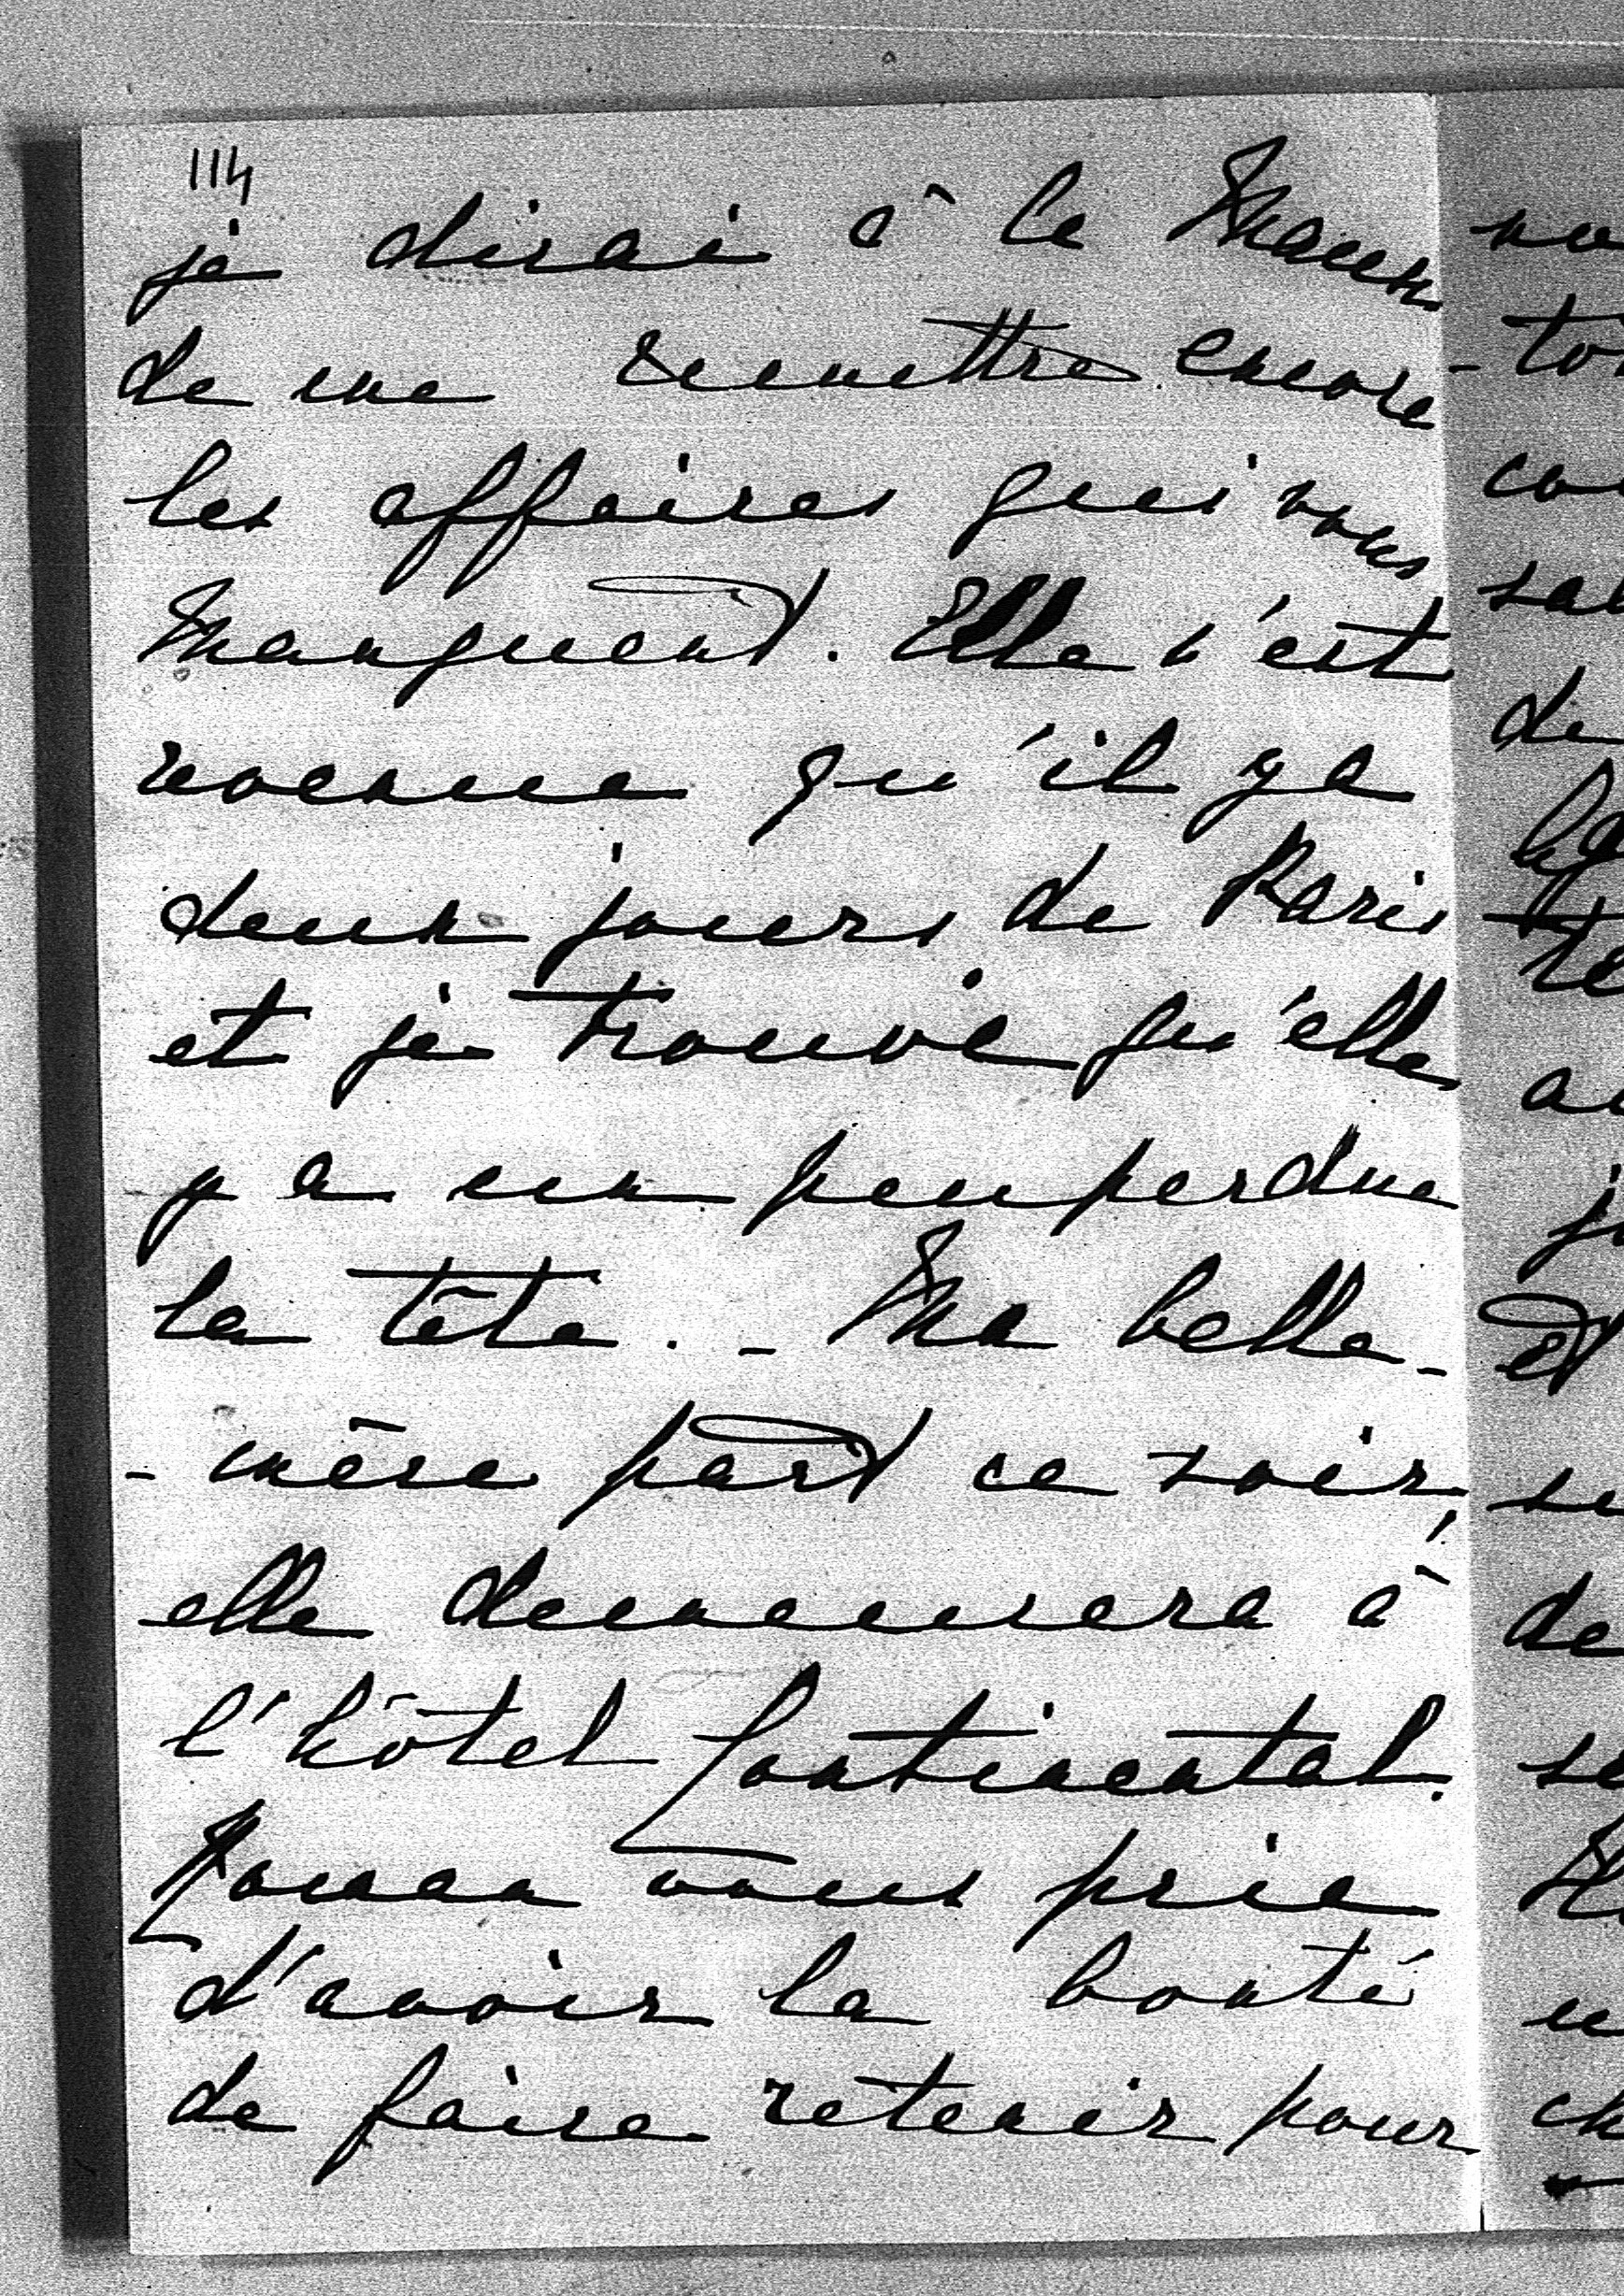 114
je dirai à la Maun
de me remettre encore
les affaires qui vous
manquent. Elle n'est
revenue qu'il y a
deux jours de Paris
et je trouve qu'elle
y a un peu perdue
la tête. - Ma belle-
- mère part ce soir,
elle demeurera à
l'hôtel Continental.
vous prie
d'avoir la bonté
de faire retenir pour